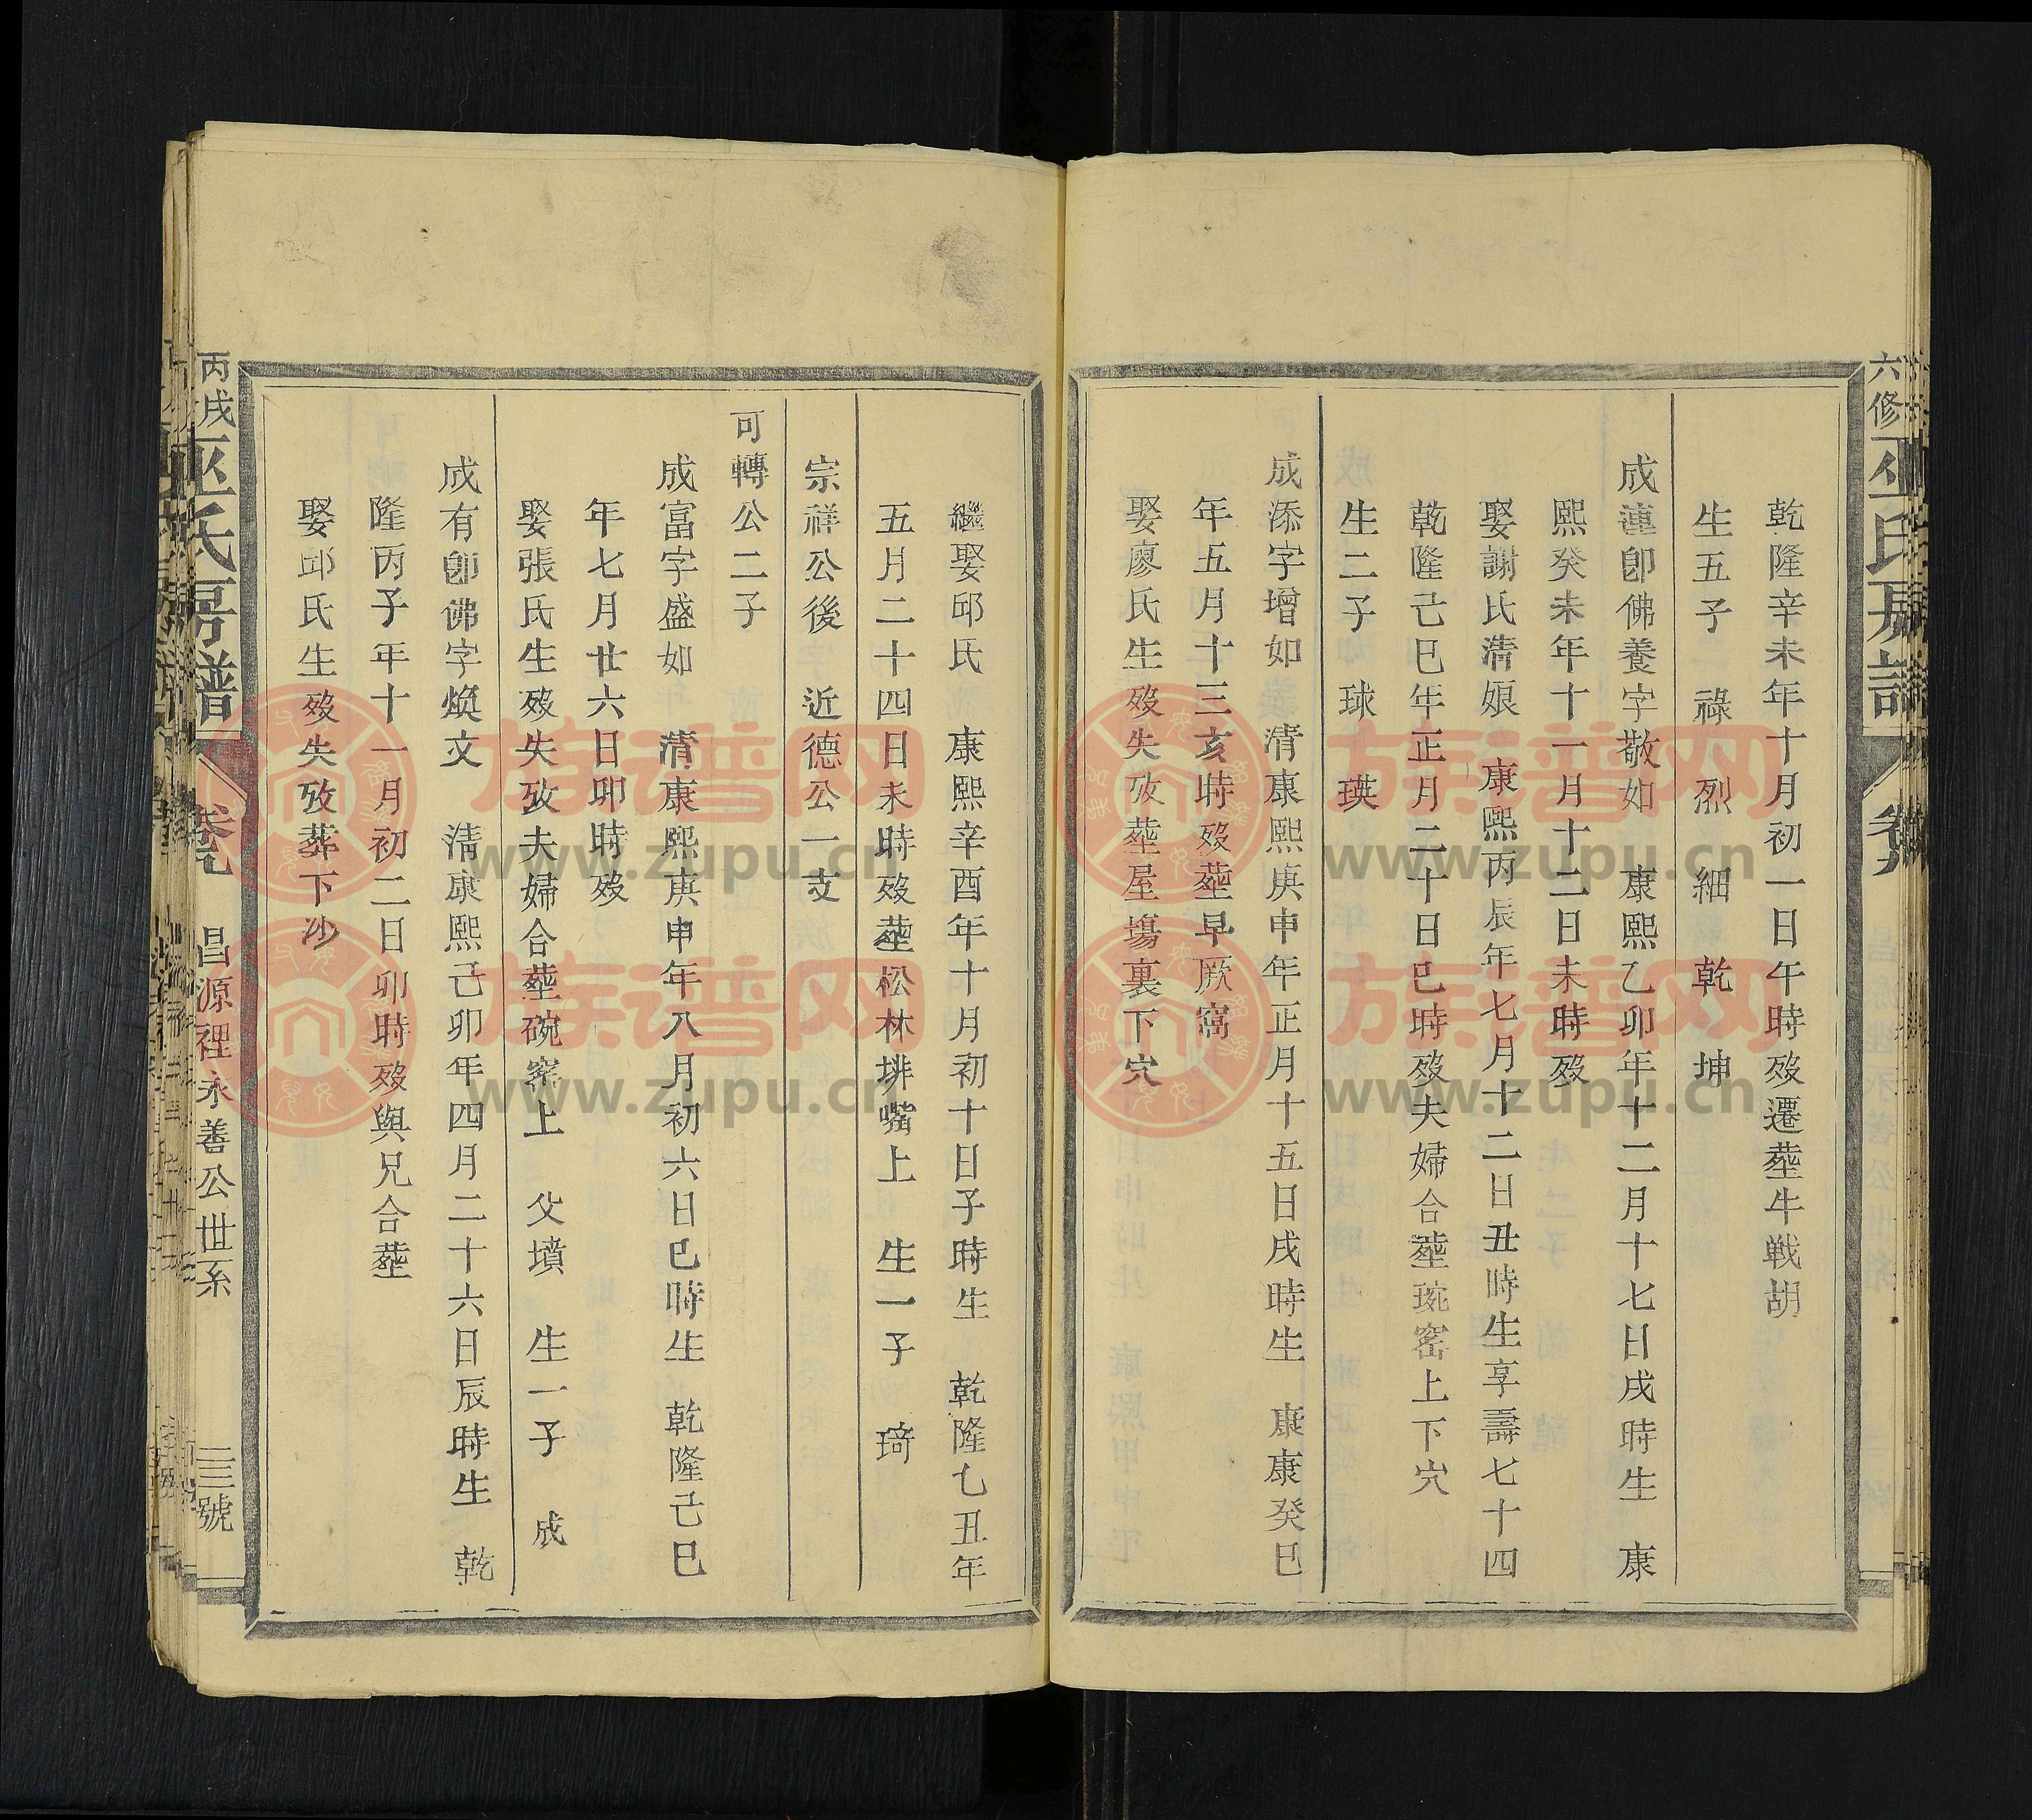 六修巫氏房譜
乾隆辛未年十月初一日午時歿遷塟牛戦胡
生五子 祿 烈 細 乾 坤
成連卽佛養字敬如 康熙乙卯年十二月十七日戌時生 康
熙癸未年十一月十二日未時歿
娶謝氏清娘 康熙丙辰年七月十二日丑時生享壽七十四
乾隆己巳年正月二十日巳時歿夫婦合塟琬窑上下穴
生二子 球 瑛
成添字增如 清康熙庚申年正月十五日戌時生 康康癸巳
年五月十三亥時歿塟早厥窩
娶廖氏生歿失攷塟屋塲裏下穴
繼娶邱氏 康熙辛酉年十月初十日子時生 乾隆乚丑年
五月二十四日未時歿塟松林排嘴上 生一子 琦
宗祥公後 近德公一支
可轉公二子
成富字盛如 清康熙庚申年八月初六日巳時生 乾隆己巳
年七月廿六日卯時歿
娶張氏生歿失攷夫婦合塟碗窑上 父墳 生一子 成
成有卽佛字煥文 清康熙己卯年四月二十六日辰時生 乾
隆丙子年十一月初二日卯時歿與兄合塟
娶邱氏生歿失攷葬下沙
丙戌巫氏房譜 昌源裡永善公世系 三號
族谱网 www.zupu.cn
族谱网 www.zupu.cn
族谱网 www.zupu.cn
族谱网 www.zupu.cn